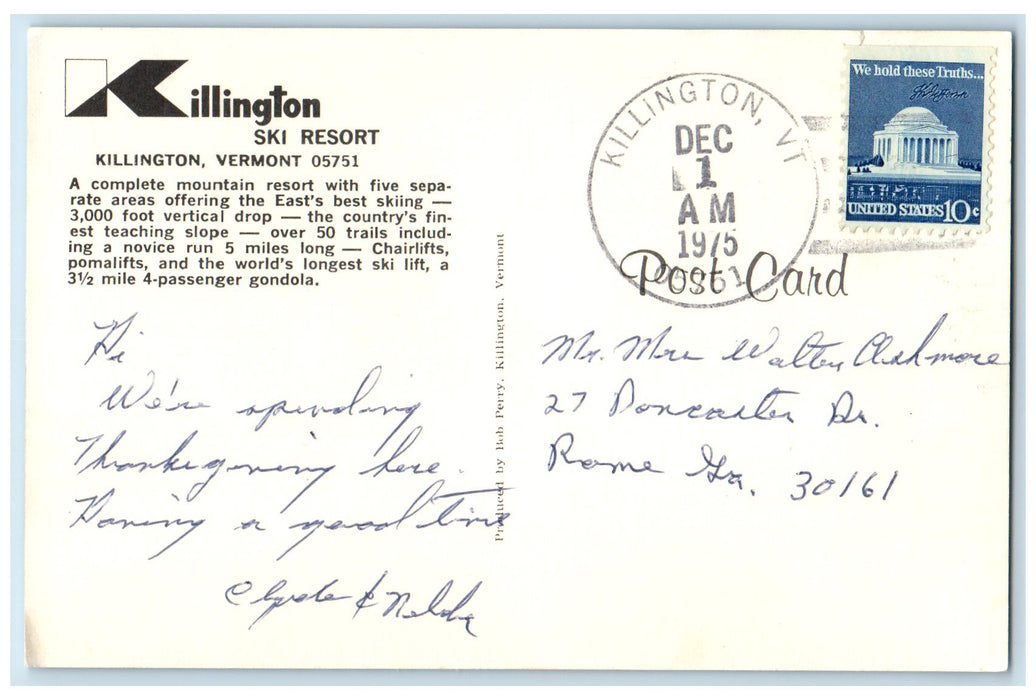 Killington
SKI RESORT
KILLINGTON, VERMONT 05751
A complete mountain resort with five sepa-
rate areas offering the East's best skiing —
3,000 foot vertical drop — the country's fin-
est teaching slope — over 50 trails includ-
ing a novice run 5 miles long — Chairlifts,
pomalifts, and the world's longest ski lift, a
3½ mile 4-passenger gondola.
Hi
We're spending
Thanksgiving here.
Having a good time
Clyde & Nelda
Produced by Bob Perry, Killington, Vermont
KILLINGTON, VT
DEC
1
AM
1975
05751
We hold these Truths...
UNITED STATES 10c
Post Card
Mr. Mrs Walter Ashmore
27 Doncaster Dr.
Rome Ga. 30161